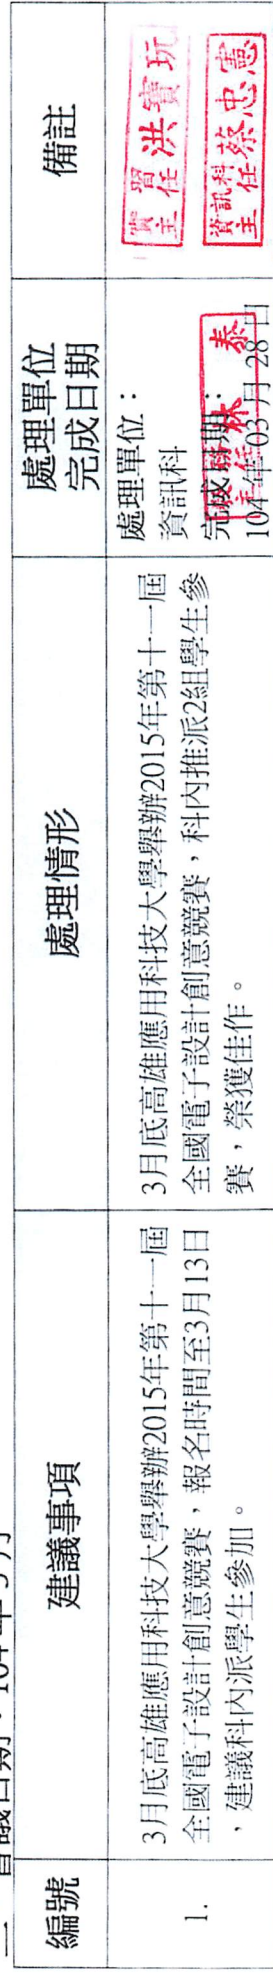 編號
建議事項
處理情形
處理單位
完成日期
備註
1.
3月底高雄應用科技大學舉辦2015年第十一屆
全國電子設計創意競賽，報名時間至3月13日
，建議科內派學生參加。
3月底高雄應用科技大學舉辦2015年第十一屆
全國電子設計創意競賽，科內推派2組學生參
賽，榮獲佳作。
處理單位：
資訊科
完成日期：
104年03月28日
實習
主任
洪寶玩
資訊科
主任
蔡忠憲